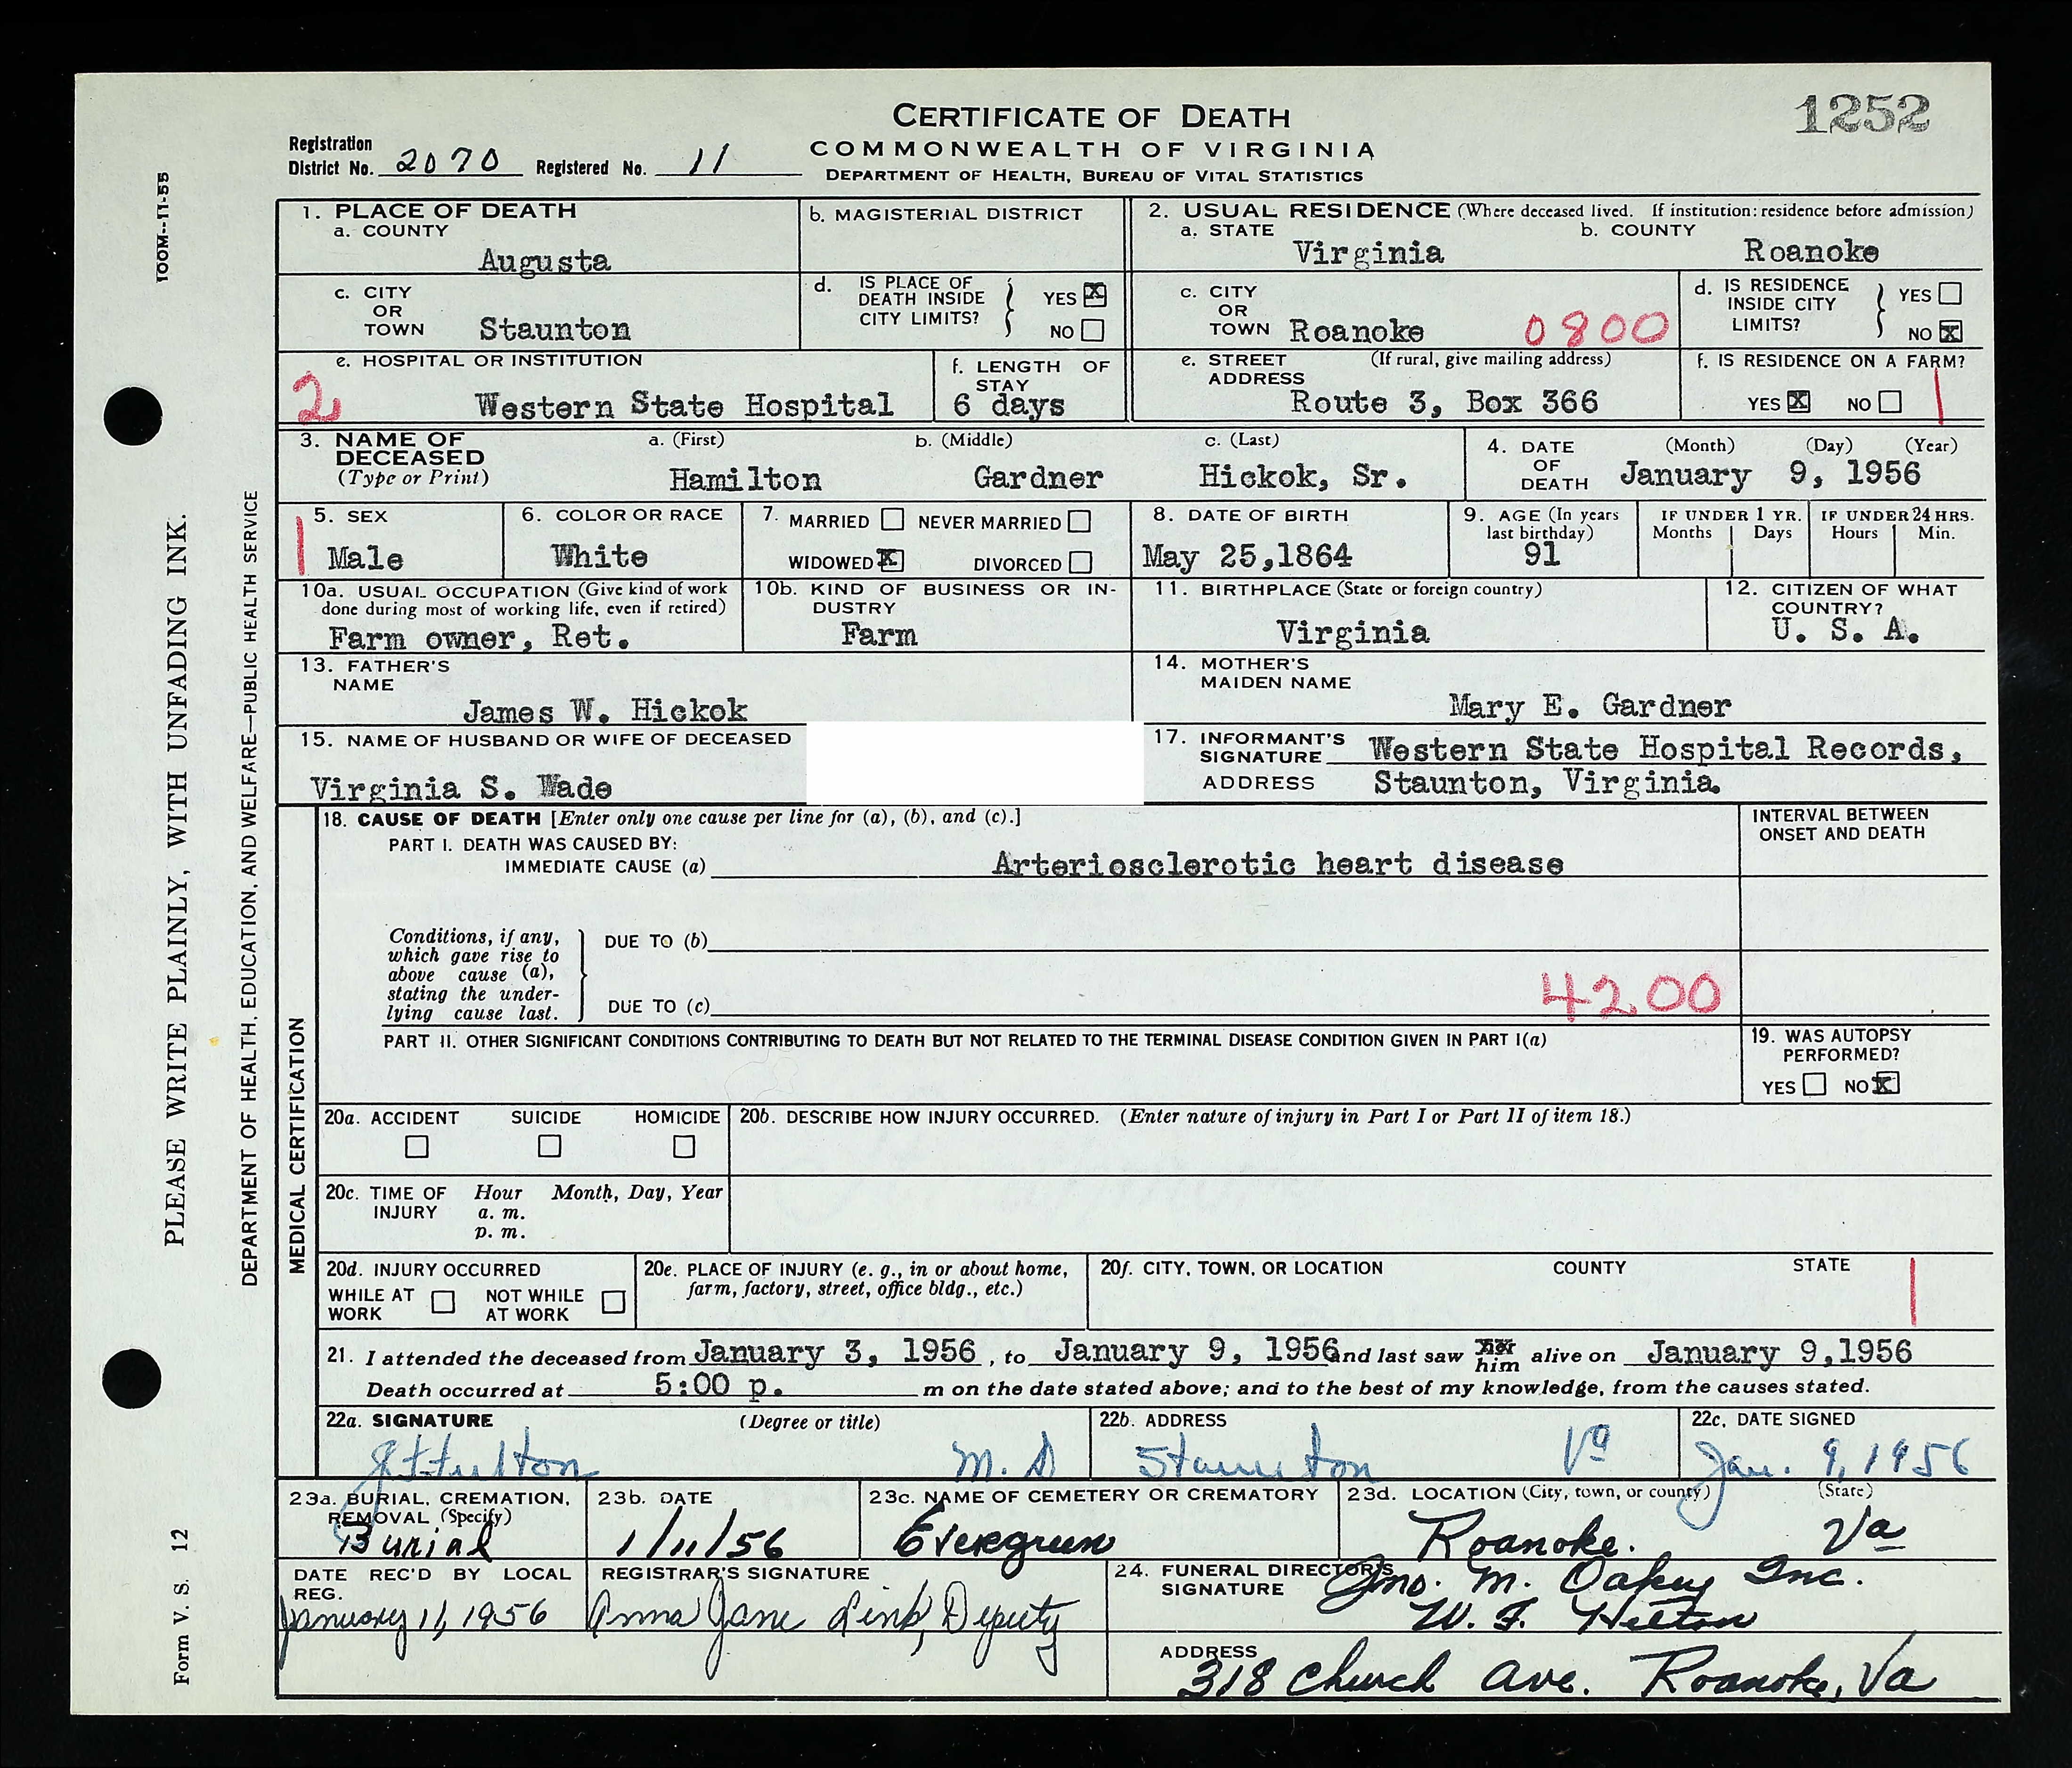 1252
CERTIFICATE OF DEATH
COMMONWEALTH OF VIRGINIA
DEPARTMENT OF HEALTH, BUREAU OF VITAL STATISTICS
Registration District No. 2070 Registered No. 11
100M--11-55
PLEASE WRITE PLAINLY, WITH UNFADING INK.
DEPARTMENT OF HEALTH, EDUCATION, AND WELFARE—PUBLIC HEALTH SERVICE
Form V. S. 12
1. PLACE OF DEATH
a. COUNTY
Augusta
b. MAGISTERIAL DISTRICT
2. USUAL RESIDENCE (Where deceased lived. If institution: residence before admission)
a. STATE
Virginia
b. COUNTY
Roanoke
c. CITY OR TOWN Staunton
d. IS PLACE OF DEATH INSIDE CITY LIMITS? YES X NO
c. CITY OR TOWN Roanoke 0800
d. IS RESIDENCE INSIDE CITY LIMITS? YES NO X
e. HOSPITAL OR INSTITUTION
2 Western State Hospital
f. LENGTH OF STAY
6 days
e. STREET ADDRESS (If rural, give mailing address)
Route 3, Box 366
f. IS RESIDENCE ON A FARM?
YES X NO
3. NAME OF DECEASED (Type or Print)
a. (First) b. (Middle) c. (Last)
Hamilton Gardner Hickok, Sr.
4. DATE OF DEATH (Month) (Day) (Year)
January 9, 1956
5. SEX
Male
6. COLOR OR RACE
White
7. MARRIED NEVER MARRIED
WIDOWED X DIVORCED
8. DATE OF BIRTH
May 25,1864
9. AGE (In years last birthday)
91
IF UNDER 1 YR.
Months Days
IF UNDER 24 HRS.
Hours Min.
10a. USUAL OCCUPATION (Give kind of work done during most of working life, even if retired)
Farm owner, Ret.
10b. KIND OF BUSINESS OR INDUSTRY
Farm
11. BIRTHPLACE (State or foreign country)
Virginia
12. CITIZEN OF WHAT COUNTRY?
U. S. A.
13. FATHER'S NAME
James W. Hickok
14. MOTHER'S MAIDEN NAME
Mary E. Gardner
15. NAME OF HUSBAND OR WIFE OF DECEASED
Virginia S. Wade
17. INFORMANT'S SIGNATURE Western State Hospital Records,
ADDRESS Staunton, Virginia.
MEDICAL CERTIFICATION
18. CAUSE OF DEATH [Enter only one cause per line for (a), (b), and (c).]
INTERVAL BETWEEN ONSET AND DEATH
PART I. DEATH WAS CAUSED BY:
IMMEDIATE CAUSE (a) Arteriosclerotic heart disease
Conditions, if any, which gave rise to above cause (a), stating the underlying cause last.
DUE TO (b)
DUE TO (c)
4200
PART II. OTHER SIGNIFICANT CONDITIONS CONTRIBUTING TO DEATH BUT NOT RELATED TO THE TERMINAL DISEASE CONDITION GIVEN IN PART I(a)
19. WAS AUTOPSY PERFORMED?
YES NO X
20a. ACCIDENT SUICIDE HOMICIDE
20b. DESCRIBE HOW INJURY OCCURRED. (Enter nature of injury in Part I or Part II of item 18.)
20c. TIME OF INJURY Hour Month, Day, Year
a. m.
p. m.
20d. INJURY OCCURRED
WHILE AT WORK NOT WHILE AT WORK
20e. PLACE OF INJURY (e. g., in or about home, farm, factory, street, office bldg., etc.)
20f. CITY, TOWN, OR LOCATION COUNTY STATE
21. I attended the deceased from January 3, 1956, to January 9, 1956 and last saw him alive on January 9,1956
Death occurred at 5:00 p. m on the date stated above; and to the best of my knowledge, from the causes stated.
22a. SIGNATURE (Degree or title)
M. D
22b. ADDRESS
Staunton Va
22c. DATE SIGNED
Jan. 9, 1956
23a. BURIAL, CREMATION, REMOVAL (Specify)
Burial
23b. DATE
1/11/56
23c. NAME OF CEMETERY OR CREMATORY
Evergreen
23d. LOCATION (City, town, or county) (State)
Roanoke. Va
DATE REC'D BY LOCAL REG.
January 11, 1956
REGISTRAR'S SIGNATURE
Anna Jane Link, Deputy
24. FUNERAL DIRECTOR'S SIGNATURE
Jno. M. Oakey Inc.
W. F. Hilton
ADDRESS
318 Church Ave. Roanoke, Va